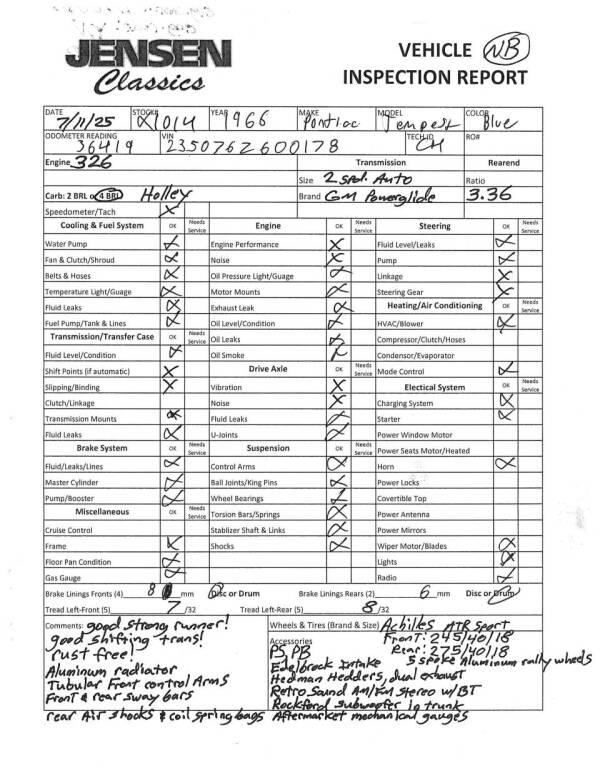 JENSEN
Classics
VEHICLE NB
INSPECTION REPORT
DATE 7/11/25 STOCK# 1014 YEAR 1966 MAKE Pontiac MODEL Tempest COLOR Blue
ODOMETER READING 36419 VIN 235076Z600178 TECH ID CH RO#
Engine 326 Transmission Rearend
Size 2 spd. Auto Ratio
Carb: 2 BRL or 4 BRL Holley Brand GM Powerglide 3.36
Speedometer/Tach X
Cooling & Fuel System OK Needs Service Engine OK Needs Service Steering OK Needs Service
Water Pump Engine Performance X Fluid Level/Leaks
Fan & Clutch/Shroud Noise X Pump
Belts & Hoses Oil Pressure Light/Guage Linkage X
Temperature Light/Guage Motor Mounts Steering Gear X
Fluid Leaks Exhaust Leak Heating/Air Conditioning OK Needs Service
Fuel Pump/Tank & Lines Oil Level/Condition HVAC/Blower
Transmission/Transfer Case OK Needs Service Oil Leaks Compressor/Clutch/Hoses
Fluid Level/Condition Oil Smoke Condensor/Evaporator
Shift Points (if automatic) X Drive Axle OK Needs Service Mode Control
Slipping/Binding X Vibration X Electical System OK Needs Service
Clutch/Linkage Noise X Charging System
Transmission Mounts Fluid Leaks Starter
Fluid Leaks U-Joints Power Window Motor
Brake System OK Needs Service Suspension OK Needs Service Power Seats Motor/Heated
Fluid/Leaks/Lines Control Arms Horn
Master Cylinder Ball Joints/King Pins Power Locks
Pump/Booster Wheel Bearings Covertible Top
Miscellaneous OK Needs Service Torsion Bars/Springs Power Antenna
Cruise Control Stablizer Shaft & Links Power Mirrors
Frame Shocks Wiper Motor/Blades
Floor Pan Condition Lights
Gas Gauge Radio
Brake Linings Fronts (4) 8 mm Disc or Drum Brake Linings Rears (2) 6 mm Disc or Drum
Tread Left-Front (5) 7 /32 Tread Left-Rear (5) 8 /32
Comments: good strong runner!
good shifting trans!
rust free!
Aluminum radiator
Tubular Front control Arms
Front & rear sway bars
rear Air shocks & coil spring bags
Wheels & Tires (Brand & Size) Achilles ATR Sport
Front: 245/40/18
Rear: 275/40/18
Accessories
PS, PB
5 spoke Aluminum rally wheels
Edelbrock Intake
Hedman Hedders, dual exhaust
Retro Sound AM/FM stereo w/BT
Rockford subwoofer in trunk
Aftermarket mechanical gauges